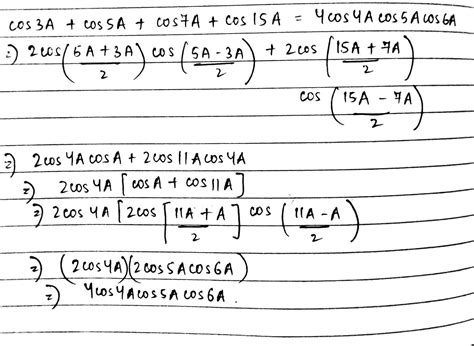 cos3A + cos5A + cos7A + cos15A = 4cos4A cos5A cos6A
=) 2cos(5A + 3A / 2) cos (5A - 3A / 2) + 2cos (15A + 7A / 2)
cos (15A - 7A / 2)
=) 2cos4A cosA + 2cos11A cos4A
=) 2cos4A [cosA + cos11A]
=) 2cos4A [2cos [11A + A / 2] cos (11A - A / 2)
=) (2cos4A)(2cos5A cos6A)
=) 4cos4A cos5A cos6A.